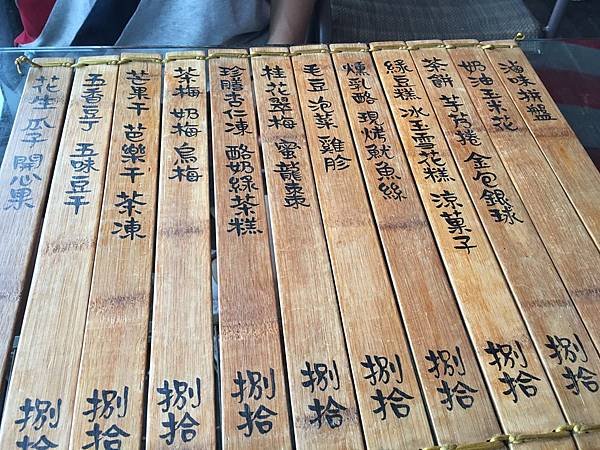 滷味拼盤 捌拾
奶油玉米花 捌拾
茶餅 芋茴捲 金包銀球 捌拾
綠豆糕 冰玉雪花糕 涼菓子 捌拾
燻乳酪 現烤魷魚絲 捌拾
毛豆 泡菜 雞胗 捌拾
桂花翠梅 蜜蘢棗 捌拾
珍膳杏仁凍 酪奶綠茶糕 捌拾
茶梅 奶梅 烏梅 捌拾
芒果干 芭樂干 茶凍 捌拾
五香豆干 五味豆干 捌拾
花生 瓜子 開心果